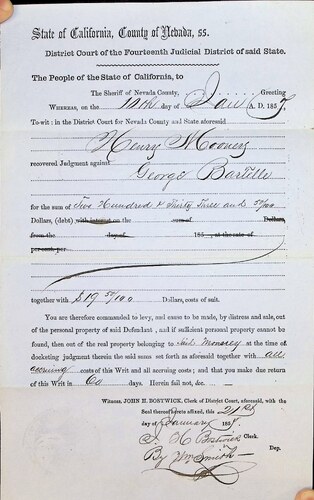 State of California, County of Nevada, ss.
District Court of the Fourteenth Judicial District of said State.
The People of the State of California, to
The Sheriff of Nevada County, Greeting
WHEREAS, on the 10th day of Jan A. D. 1857,
To-wit: in the District Court for Nevada County and State aforesaid
Henry Mooney
recovered Judgment against
George Bartelle
for the sum of Two Hundred & Thirty Three and 50/100
Dollars, (debt) with interest on the sum of Dollars,
from the day of 185 , at the rate of
per cent. per
together with $19 50/100 Dollars, costs of suit.
You are therefore commanded to levy, and cause to be made, by distress and sale, out
of the personal property of said Defendant , and if sufficient personal property cannot be
found, then out of the real property belonging to said at the time of
docketing judgment therein the said sum set forth as aforesaid together with all
accruing costs of this Writ and all accruing costs; and that you make due
return of this Writ in 60 days. Herein fail not, &c.
Witness, JOHN H. BOSTWICK, Clerk of District Court, aforesaid, with the
Seal thereof hereto affixed, this 21st
day of January 185
J. H. Bostwick Clerk.
By Wm Smith Dep.